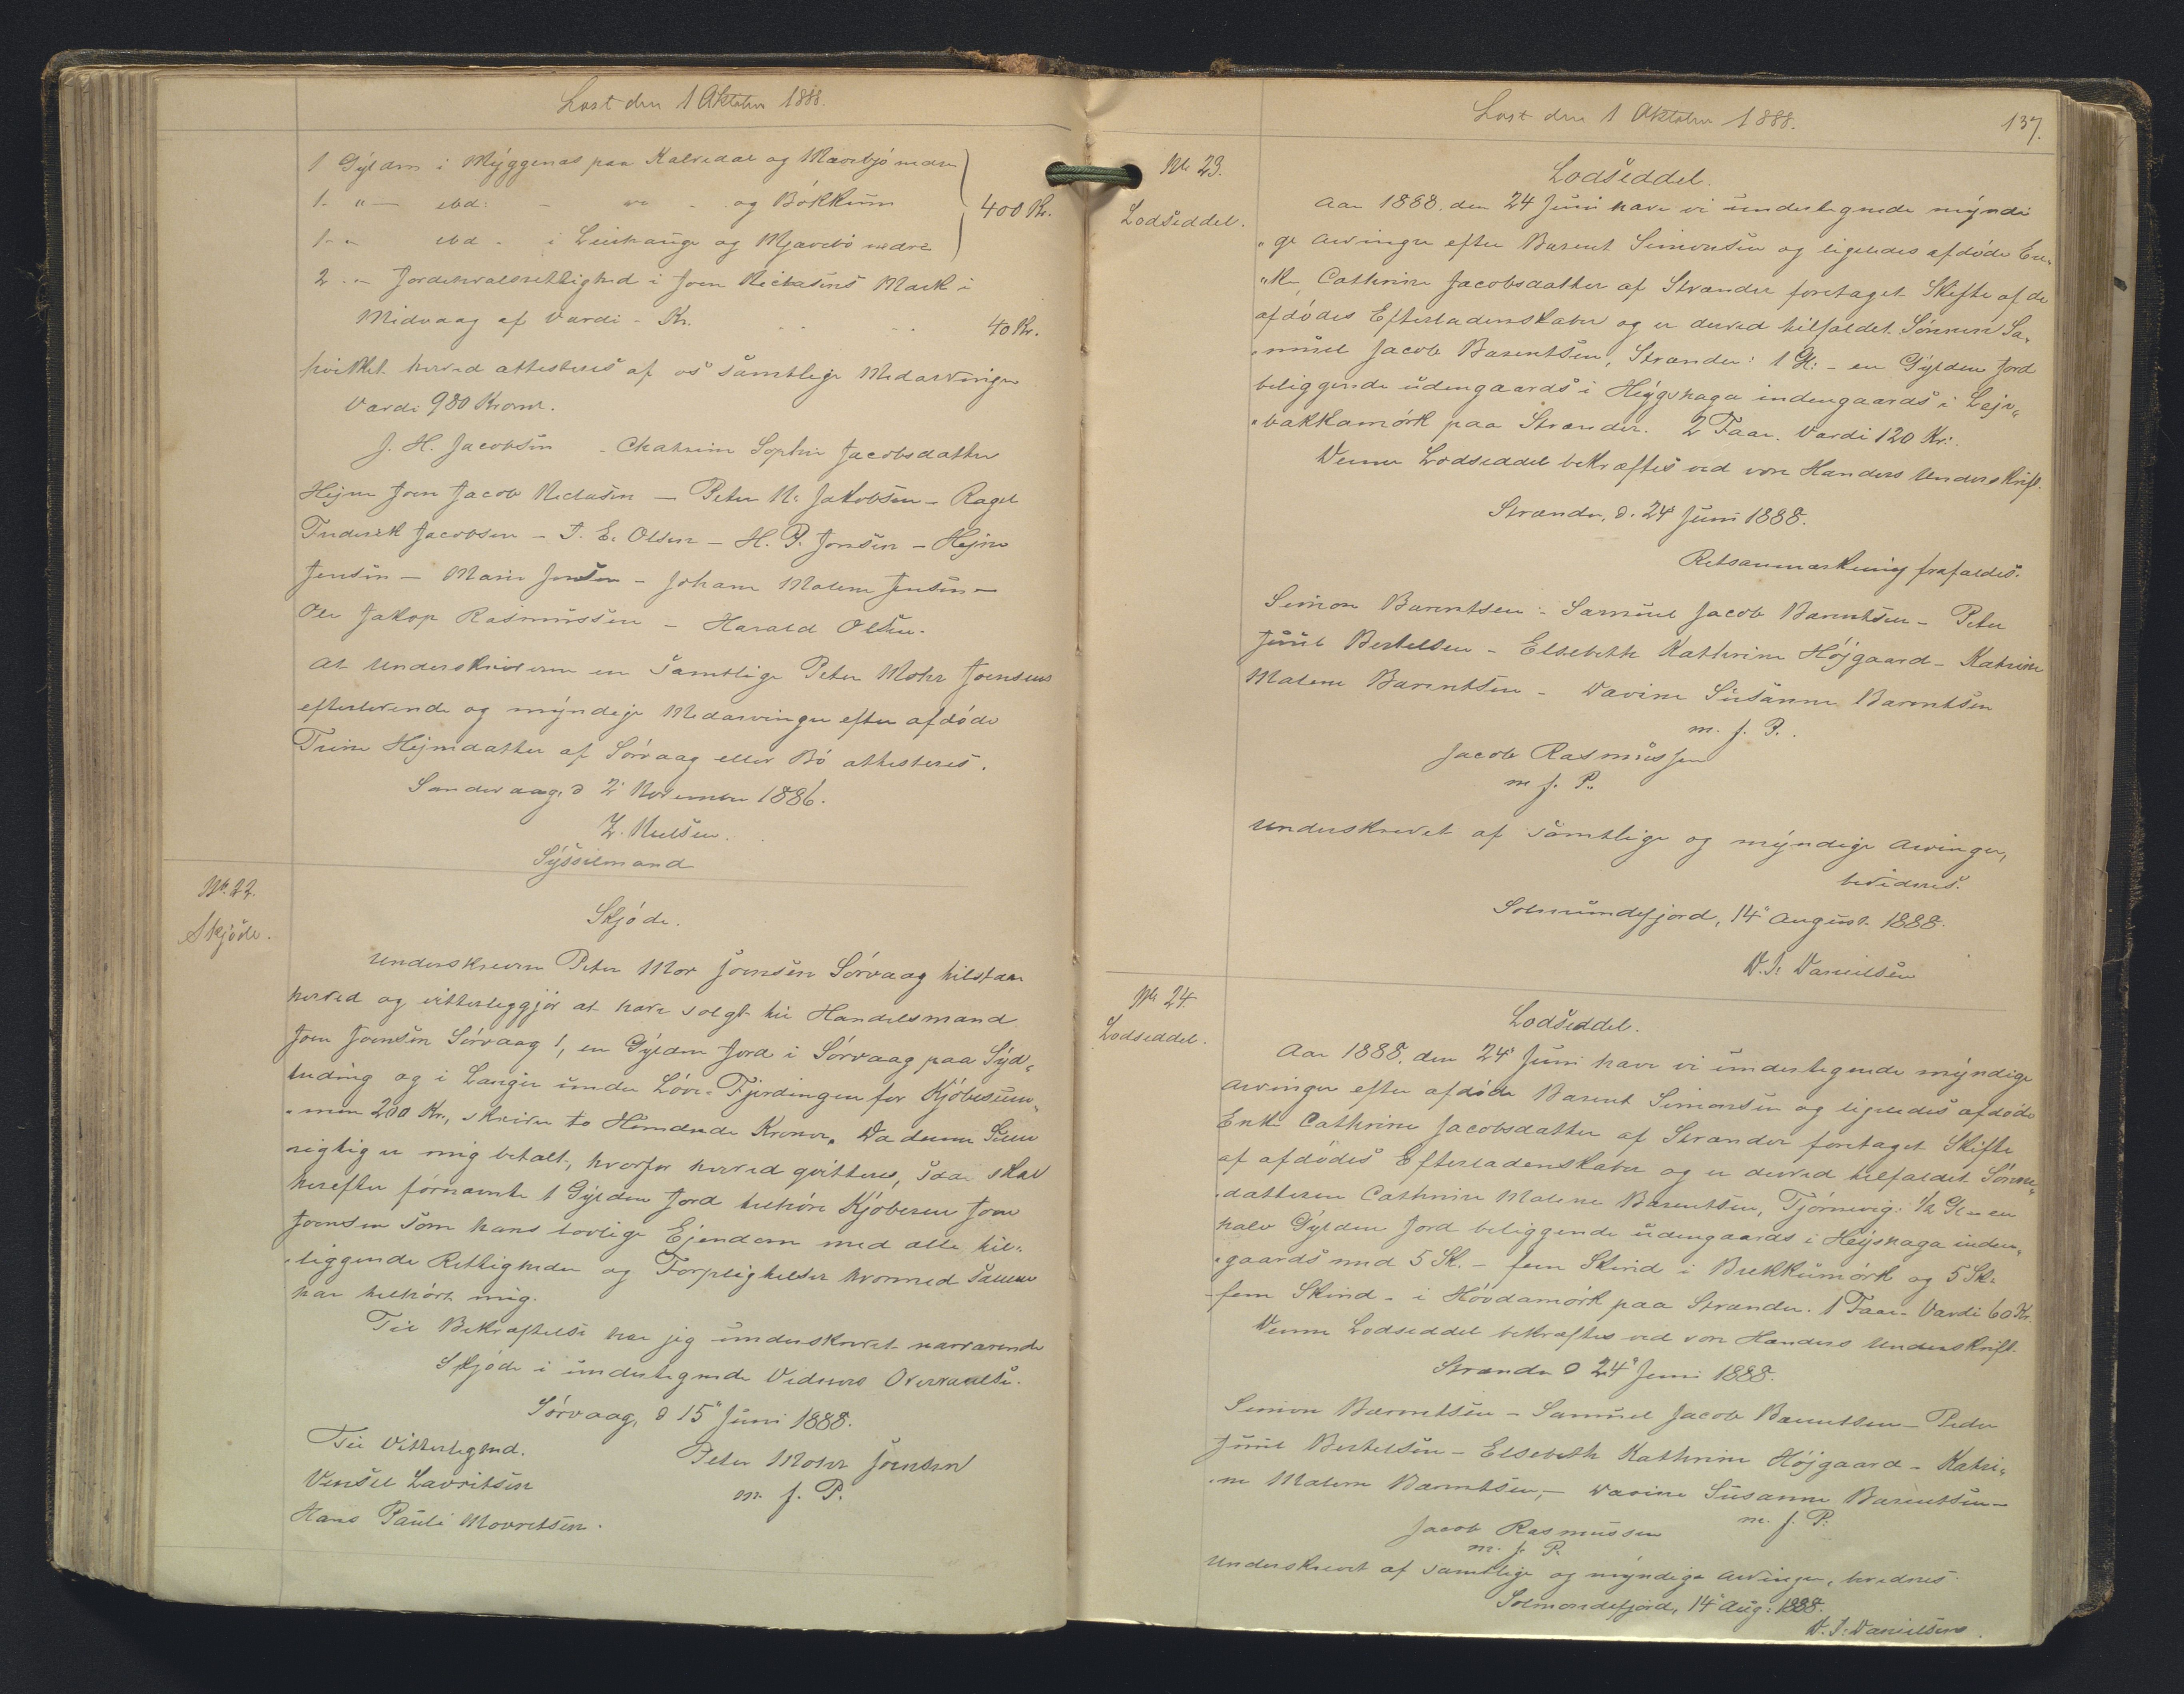 Læst den 1 Oktober 1888.
1 Gylden i Myggenæs paa Kalvedal og nedre
1 - " - ibd: - - og Bökkum
400 Kr.
1 - " ibd - i og nedre
2 - " - Jordehvalsrettighed i Joen Mark i
Midvaag af Værdi - Kr. 40 Kr.
hvilket herved attesteres af os samtlige Medarvinger
Værdi 980 Kroner.
J. H. Jacobsen - Sophie Jacobsdatter
Hejne Joen Jacob - Peter N. Jakobsen - Ragel
Jacobsen - J. E. Olsen - H. P. Jensen - Hejne
Jensen - Marie Jensen - Johane Malene Jensen -
Ole Jakop Rasmussen - Harald Olsen.
At Underskriverne ere samtlige Peter Mohr Joensens
efterlevende og myndige Medarvinger efter afdöde
Trine Hejnedatter af Sörvaag eller Bö attesteres.
Sandevaag, d 2' November 1886.
Z. Nielsen.
Sysselmand
No. 22.
Skjöde.
Skjöde.
Underskreven Peter Mor Joensen Sörvaag tilstaar
herved og vitterliggjör at have solgt til Handelsmand
Joen Joensen Sörvaag 1, en Gylden Jord i Sörvaag paa Syd„
og i under Fjerdingen for Kjöbesum„
„men 200 Kr., skriver to Hundrede Kroner. Da denne Sum
rigtig er mig betalt, hvorfor herved qvitteres, saa skal
herefter fornævnte 1 Gylden Jord tilhöre Kjöberen Joen
Joensen som hans lovlige Ejendom med alle til„
„liggende Rettigheder og Forpligtelser hvormed samme
har tilhört mig.
Til Bekræftelse har jeg underskrevet nærværende
Skjöde i undertegnede Vidners Overværelse.
Sörvaag, d 15" Juni 1888.
Til Vitterlighed. Peter Mohr Joensen
Lavritsen m. f. P.
Hans Pauli Movretsen.
Læst den 1 Oktober 1888.
137.
No 23.
Lodseddel.
Lodseddel.
Aar 1888. den 24 Juni have vi undertegnede myndi
„ge Arvinger efter Barent Simonsen og ligeledes afdöde En„
„ke, Cathrine Jacobsdatter af Strænder foretaget Skifte af de
afdödes Efterladenskaber og er derved tilfaldet Sönnen Sa„
„muel Jacob Barentsen, Strænder: 1 Gl: - en Gylden Jord
beliggende udengaards i Heygshaga indengaards i Leje„
„bakkamörk paa Strænder. 2 Faar. Værdi 120 Kr:.
Denne Lodseddel bekræftes ved vore Hænders Underskrift.
Strænder, d. 24' Juni 1888.
Retsanmærkning frafaldes.
Simon Barentsen - Samuel Jacob Barentsen - Peter
Juul Bertelsen - Elsebeth Kathrine Höjgaard - Katrine
Malene Barentsen - Davine Susanne Barentsen
m. f. P.
Jacob Rasmussen
m f. P.
Underskrevet af samtlige og myndige Arvinger,
bevidnes.
Solmundefjord, 14" August 1888.
D. J. Danielsen
No 24.
Lodseddel.
Lodseddel.
Aar 1888. den 24" Juni have vi undertegnede myndige
Arvinger efter afdöde Barent Simonsen og ligeledes afdöde
Enke Cathrine Jacobsdatter af Strænder foretaget Skifte
af afdödes Efterladenskaber og er derved tilfaldet Sönne„
„datteren Cathrine Malene Barentsen, Tjörnevig: 1/2 Gl - en
halv Gylden Jord beliggende udengaards i Heyshaga inden„
„gaards med 5 Sk. - fem Skind i Brekkumörk og 5 Sk.
fem Skind - i Hövdamörk paa Strænder. 1 Faar. Værdi 60 Kr.
Denne Lodseddel bekræftes ved vore Hænders Underskrift.
Strænder d 24" Juni 1888.
Simon Barentsen - Samuel Jacob Barentsen - Peder
Juul Bertelsen - Elsebeth Kathrine Höjgaard - Katri„
„ne Malene Barentsen, - Davine Susanne Barentsen -
m. f. P.
Jacob Rasmussen
m. f. P.
Underskrevet af samtlige og myndige Arvinger, bevidnes.
Solmondefjord, 14" Aug: 1888.
D. J. Danielsen.